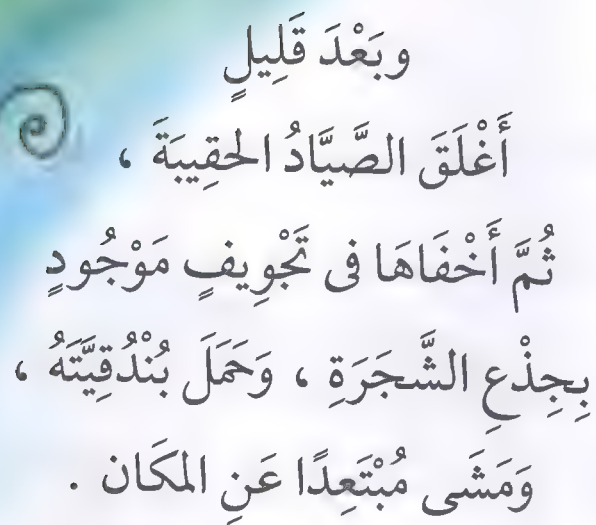 وبَعْدَ قَلِيلٍ
أَغْلَقَ الصَّيَّادُ الحقِيبَةَ ،
ثُمَّ أَخْفَاهَا فى تَجْوِيفٍ مَوْجُودٍ
بِجِذْعِ الشَّجَرَةِ ، وَحَمَلَ بُنْدُقِيَّتَهُ ،
وَمَشَى مُبْتَعِدًا عَنِ المكَان .